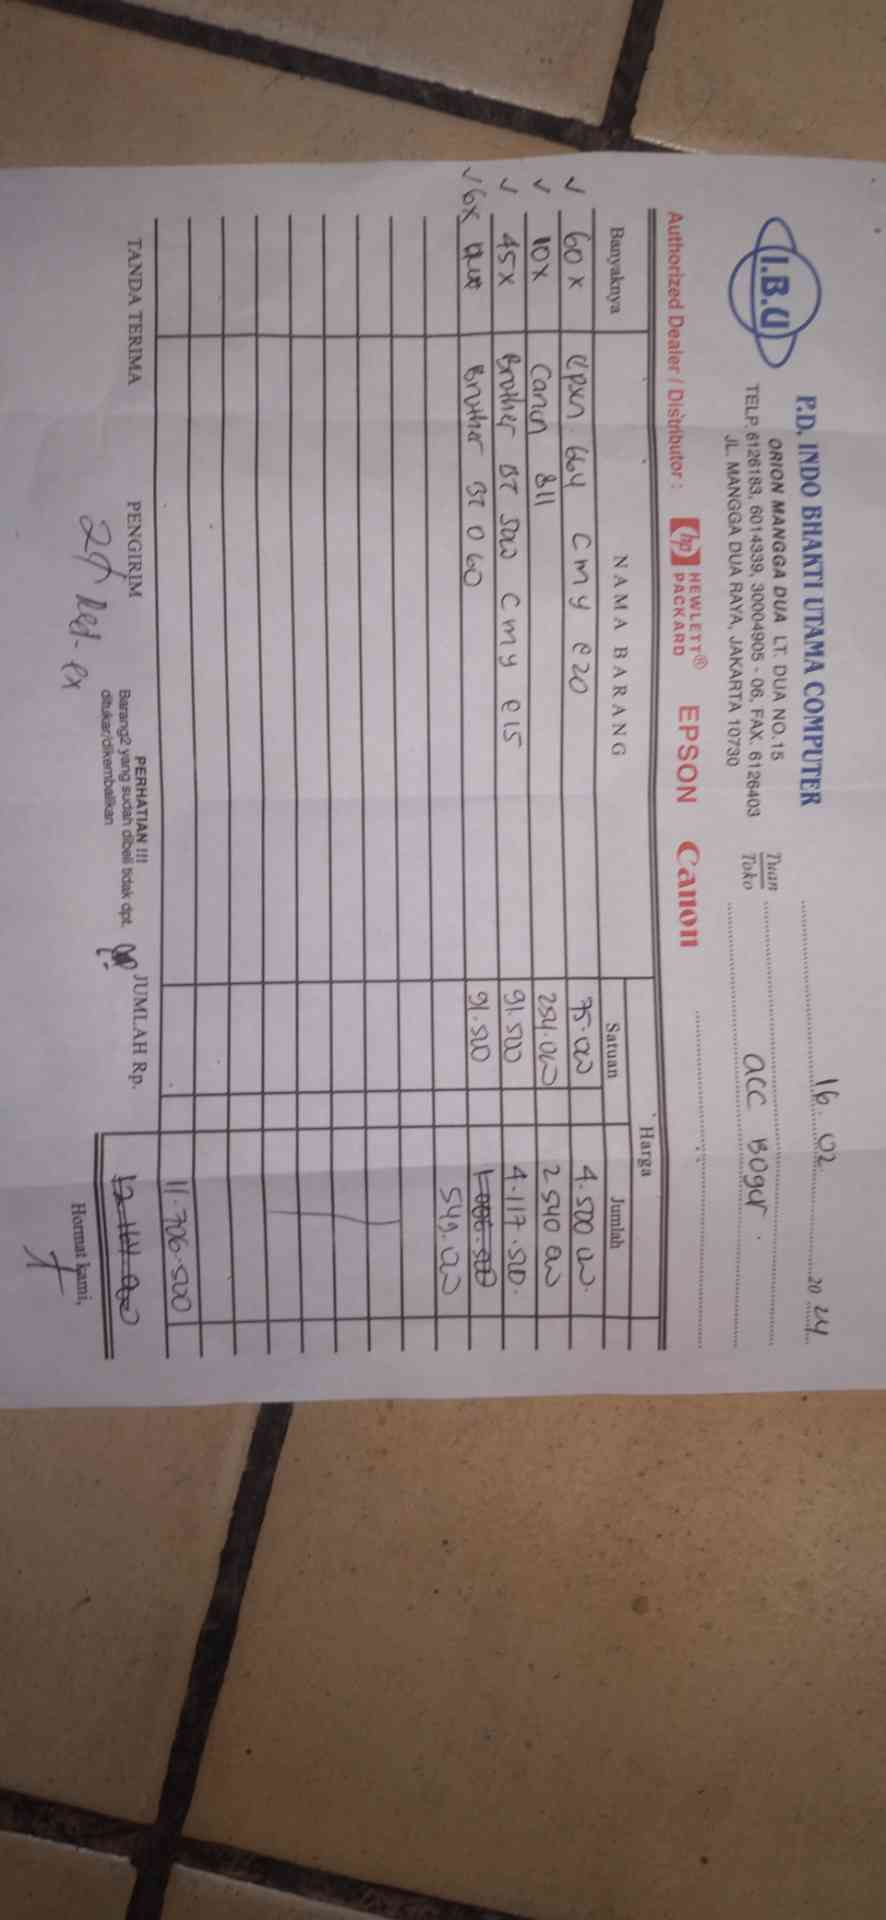 I.B.U
P.D. INDO BHAKTI UTAMA COMPUTER
ORION MANGGA DUA LT. DUA NO.15
TELP. 6126183, 6014339, 30004905 - 06, FAX. 6126403
JL. MANGGA DUA RAYA, JAKARTA 10730
16. 02 20 24
Tuan
Toko
acc Bogor.
Authorized Dealer / Distributor : hp HEWLETT® PACKARD EPSON Canon
Banyaknya NAMA BARANG Harga
Satuan Jumlah
60 x Epson 664 CMY @20 75.000 4.500.000
10x Canon 811 254.000 2.540.000
45x Brother BT 5000 CMY @15 91.500 4.117.500
6x Brother BT D60 91.500
549.000
11.706.500
TANDA TERIMA PENGIRIM
PERHATIAN !!!
Barang2 yang sudah dibeli tidak dpt.
ditukar/dikembalikan
JUMLAH Rp.
Hormat kami,